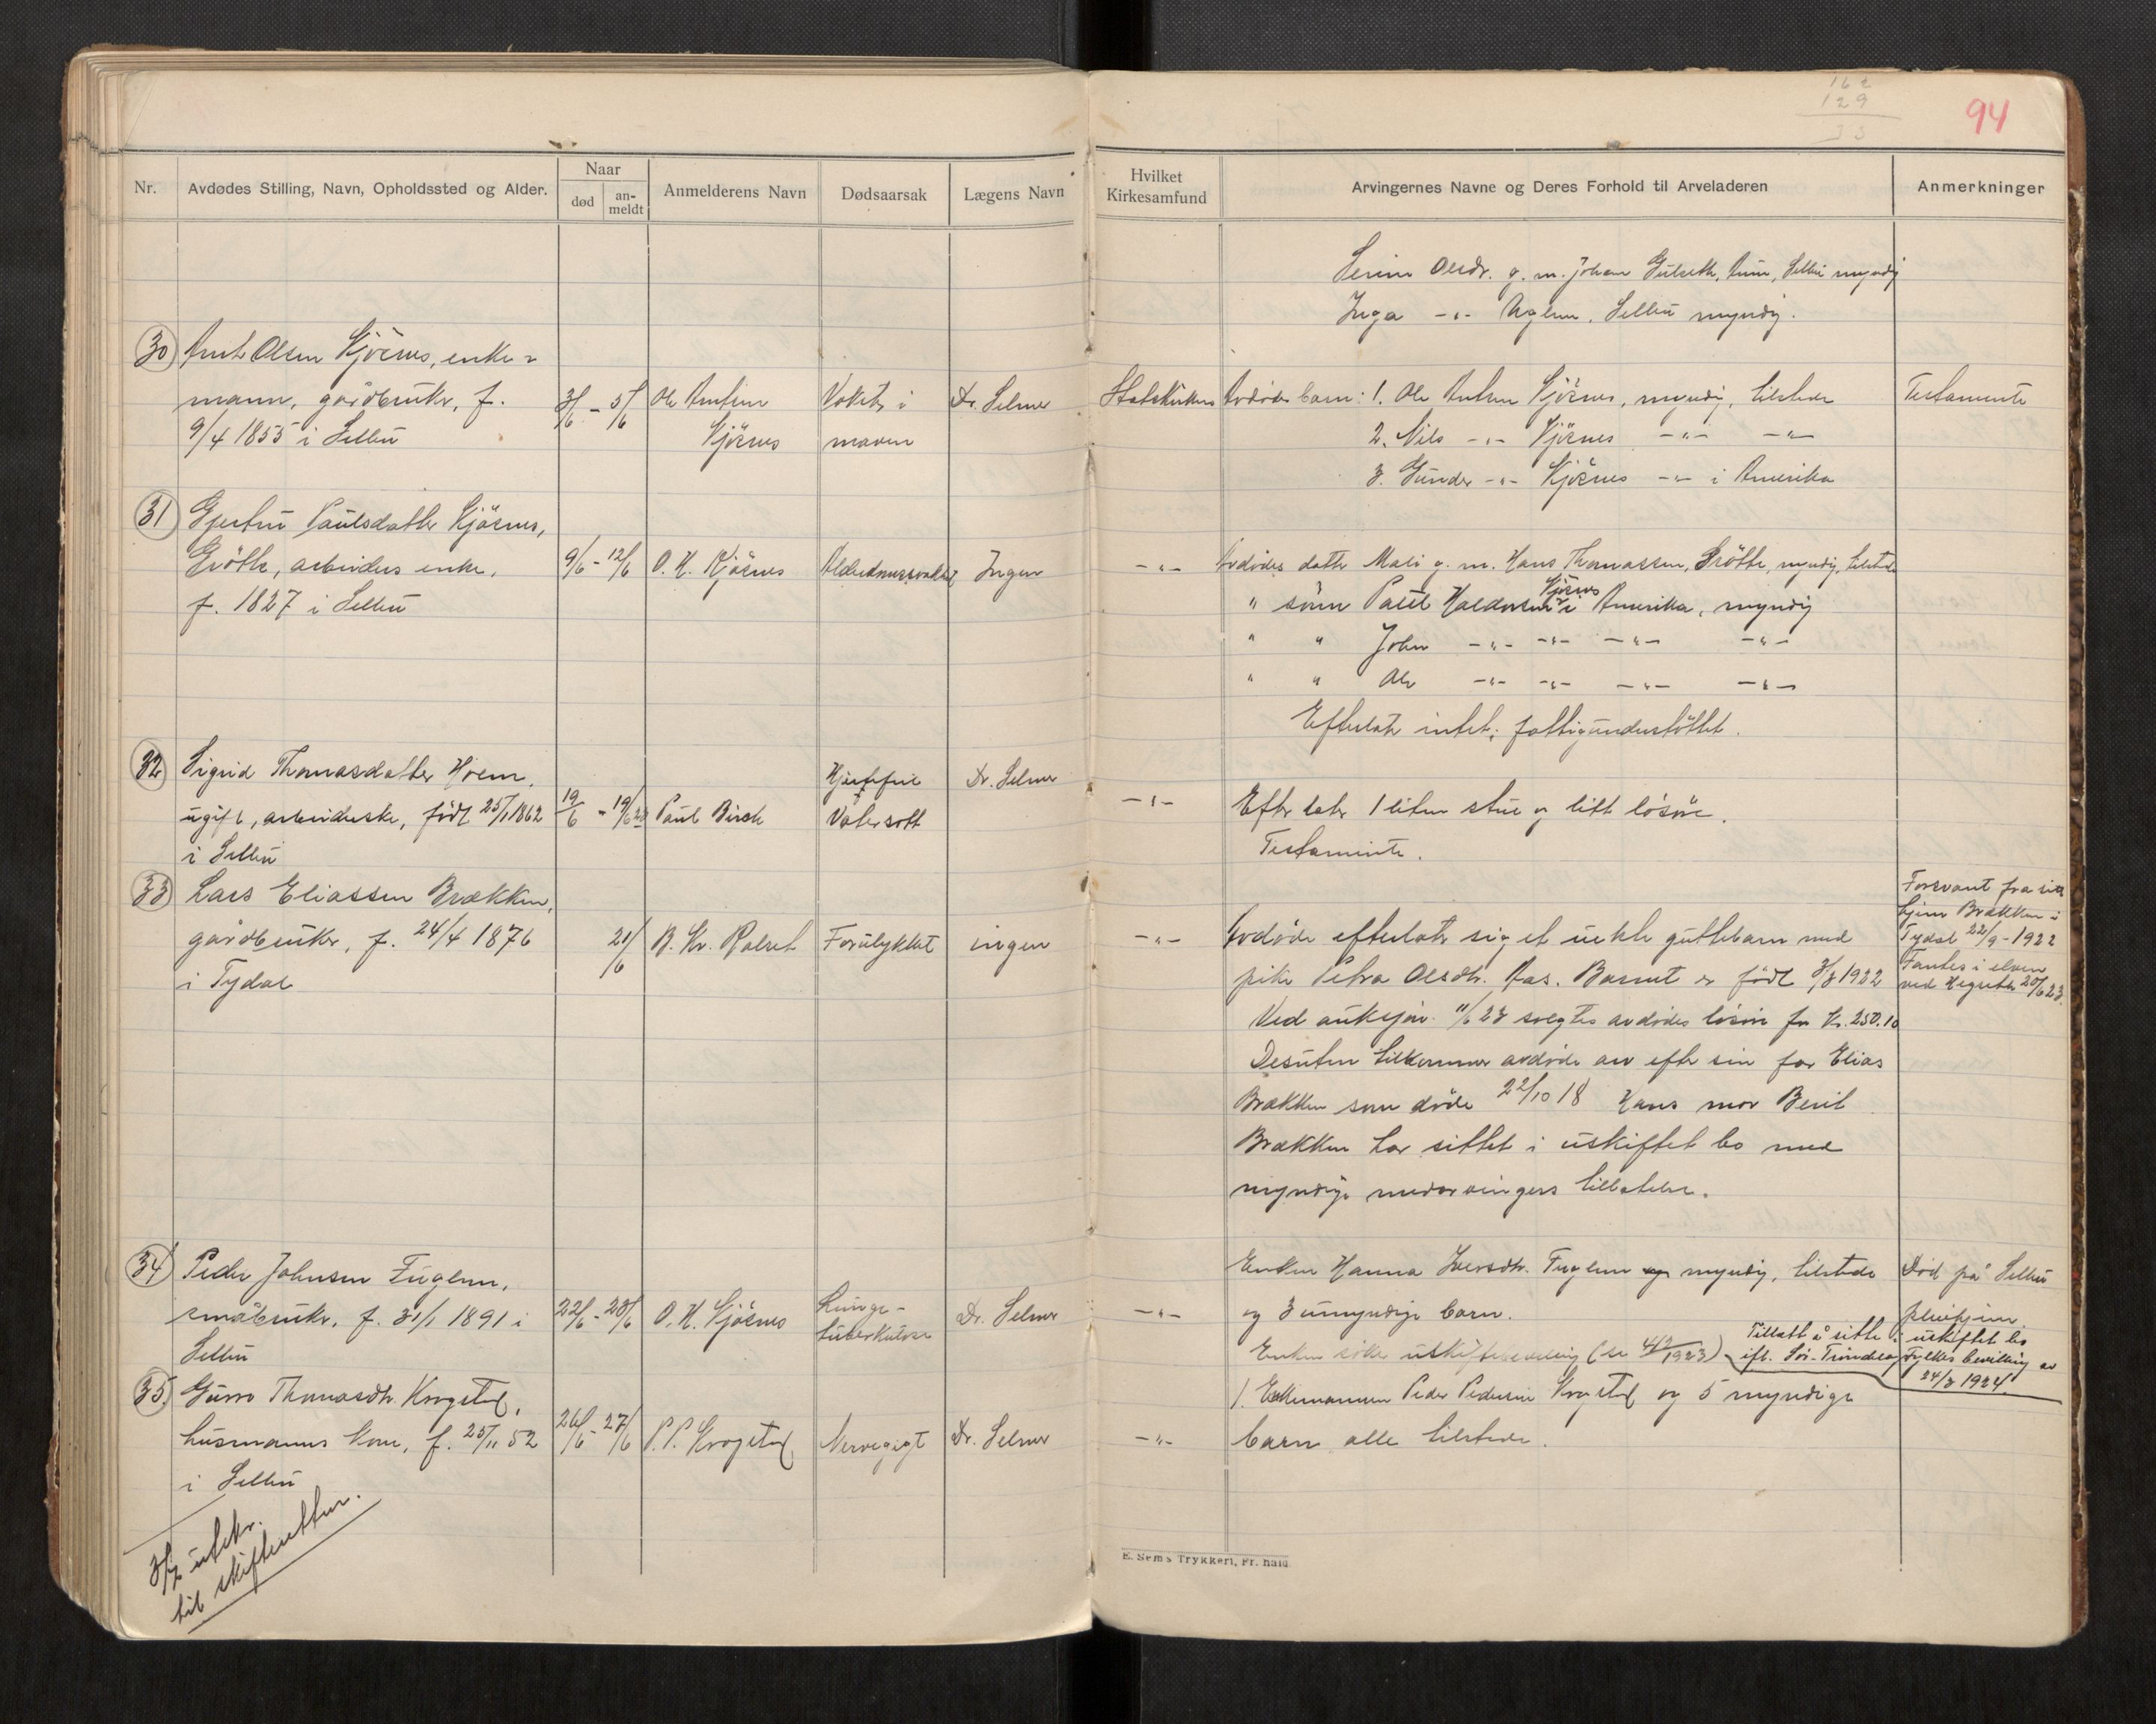 162
129
33
94
Nr.
Avdødes Stilling, Navn, Opholdssted og Alder.
Naar
død
an-
meldt
Anmelderens Navn
Dødsaarsak
Lægens Navn
Hvilket
Kirkesamfund
Arvingernes Navne og Deres Forhold til Arveladeren
Anmerkninger
Olsdr. g. m. Johan Gulseth, Selbu myndig
Inga -"- Uglem, Selbu myndig.
30 Arnt Olsen Kjøsnes, enke-
mann, gårdbruker, f.
9/4 1855 i Selbu
3/6 - 5/6
Ole Arntsen
Kjøsnes
Vokster i
maven
Dr. Selmer
Statskirken
Avdødes barn: 1. Ole Arntsen Kjøsnes, myndig, tilstede
2. Nils -"- Kjøsnes -"- -"-
3. Gunder -"- Kjøsnes -"- i Amerika
Testamente
31 Gjertru Paulsdatter Kjøsnes,
Grøtte, arbeiders enke,
f. 1827 i Selbu
9/6 - 12/6
O. H. Kjøsnes
Alderdomssvakhet
Ingen
-"-
Avdødes datter Mali g. m. Hans Thomassen, Grøtte, myndig, tilstede
" sønn Paul Haldorsen Kjøsnes i Amerika, myndig
" " John -"- -"- -"- -"-
" " Ole -"- -"- -"- -"-
Efterlot intet; fattigunderstøttet.
32 Sigrid Thomasdatter Hoem,
ugift, arbeiderske, født 25/1 1862
i Selbu
19/6 - 19/6 23
Paul Birck
Hjertefeil
Vatersott
Dr. Selmer
-"-
Efterlater 1 liten stue og litt løsøre.
Testamente.
33 Lars Eliassen Brækken,
gårdbruker, f. 24/4 1876
i Tydal
21/6
B. Kr. Rolset
Forulykket
ingen
-"-
Avdøde efterlot sig et uekte guttebarn med
pike Petra Olsdtr. Aas. Barnet er født 3/8 1922
Ved auksjon 11/6 23 solgtes avdødes løsøre for Kr. 250.10
Desuten tilkommer avdøde arv efter sin far Elias
Brækken som døde 22/10 18 Hans mor Berit
Brækken har sittet i uskiftet bo med
myndige medarvingers tillatelse.
Forsvant fra sitt
hjem Brækken i
Tydal 22/9 - 1922
Fantes i elven
ved Hegseth 20/6 23.
34 Peder Johnsen Fuglem,
småbruker, f. 31/1 1891 i
Selbu
22/6 - 23/6
O. H. Kjøsnes
Lunge-
tuberkulose
Dr. Selmer
-"-
Enken Hanna Iversdtr. Fuglem og myndig, tilstede
og 3 umyndige barn.
Enken søker uskiftebevilling (se /1923)
Død på Selbu
pleiehjem.
Tillatt å sitte i uskiftet bo
ifl. Sør-Trøndelag Fylkes bevilling av
24/3 1924.
35 Guro Thomasdtr. Krogstad,
husmanns kone, f. 25/11 52
i Selbu
26/6 - 27/6
P. P. Krogstad
Nervegigt
Dr. Selmer
-"-
1. Enkemannen Peder Pedersen Krogstad og 5 myndige
barn alle tilstede.
3/7 utskr.
til skifteretten.
E. Sem's Trykkeri, Fr.hald.